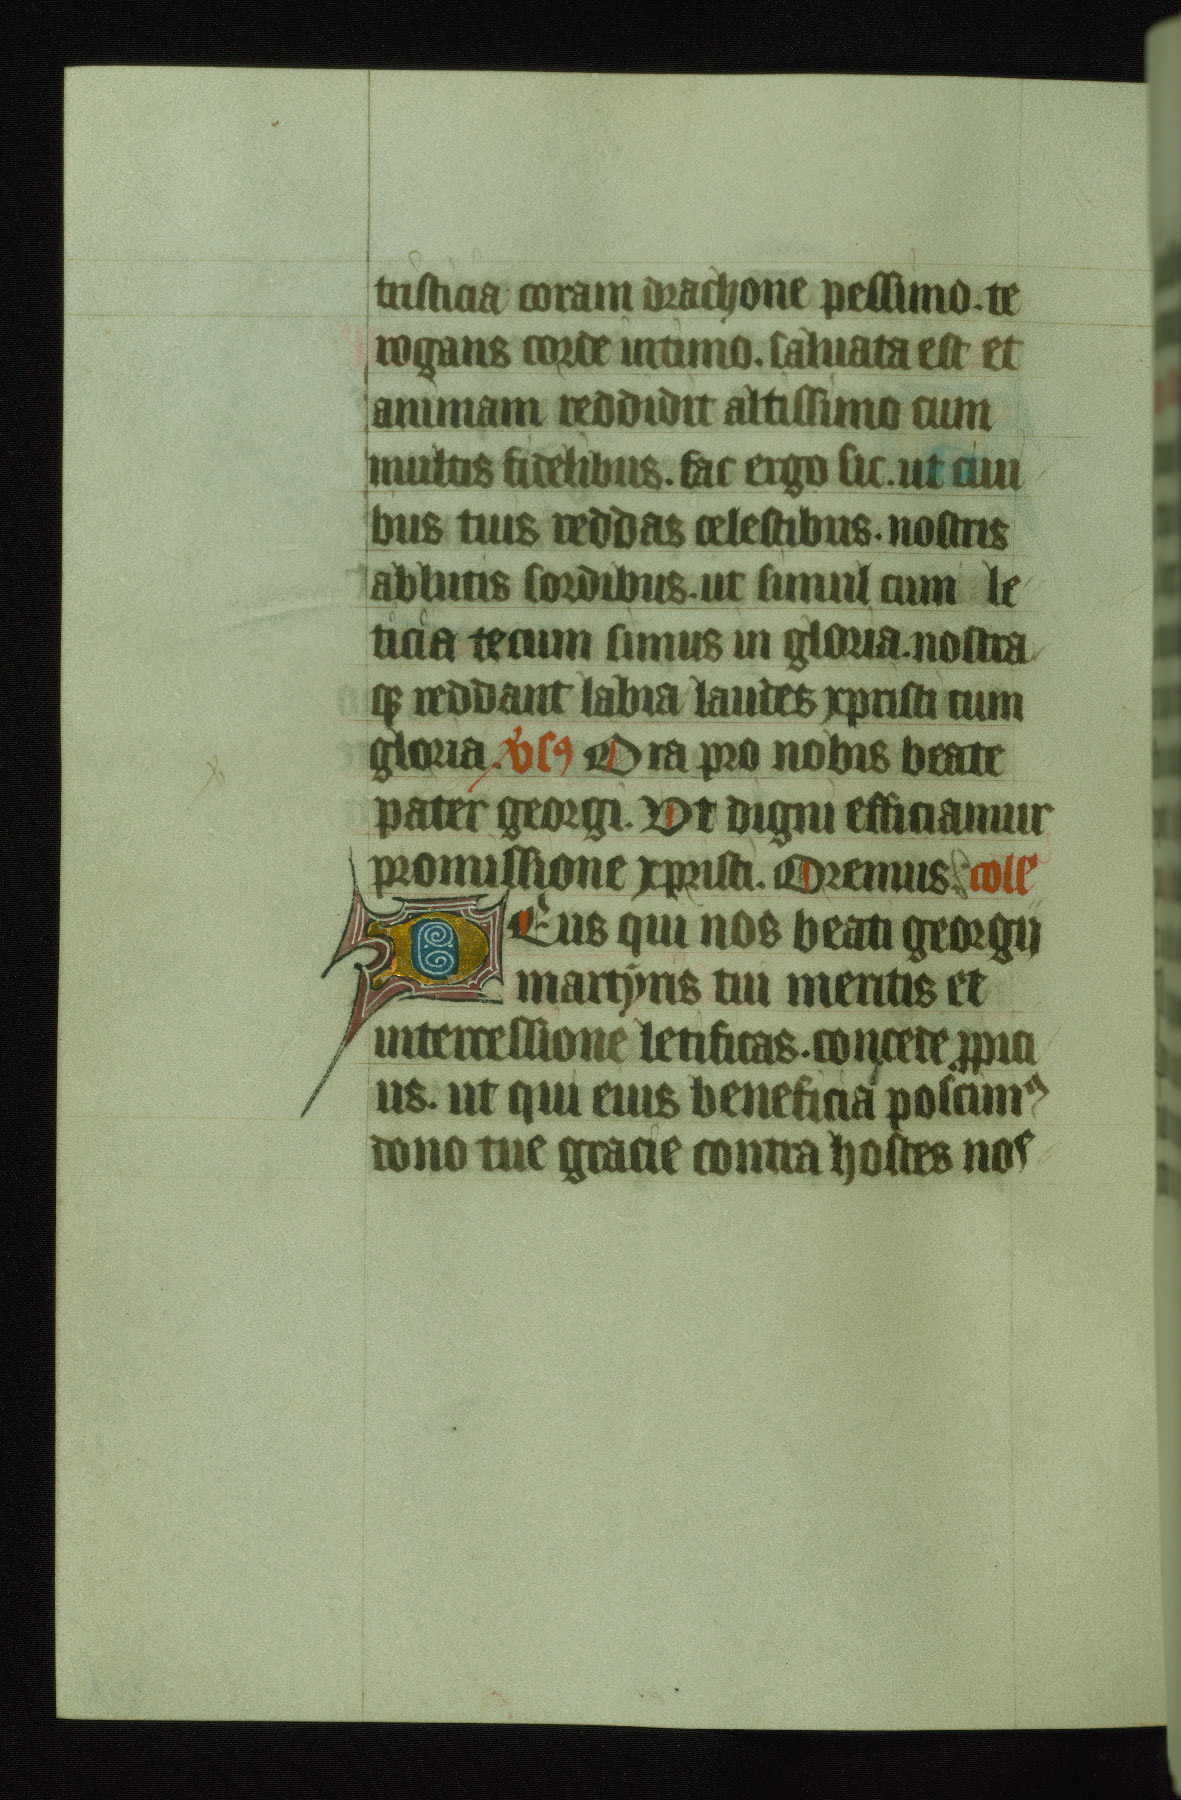 tristicia coram drachone pessimo. te
rogans corde intimo. saluata est et
animam reddidit altissimo cum
multis fidelibus. fac ergo sic. ut ciui
bus tuis reddas celestibus. nostris
ablutis sordibus. ut simul cum le
ticia tecum simus in gloria. nostra
qꝫ reddant labia laudes xpristi cum
gloria. v̓sꝯ Ora pro nobis beate
pater georgi. Vt digni efficiamur
promissione xpristi. Oremus. coll'
DEus qui nos beati georgij
martyris tui meritis et
intercessione letificas. concede ꝓpici
us. ut qui eius beneficia poscimꝰ
dono tue gracie contra hostes nos